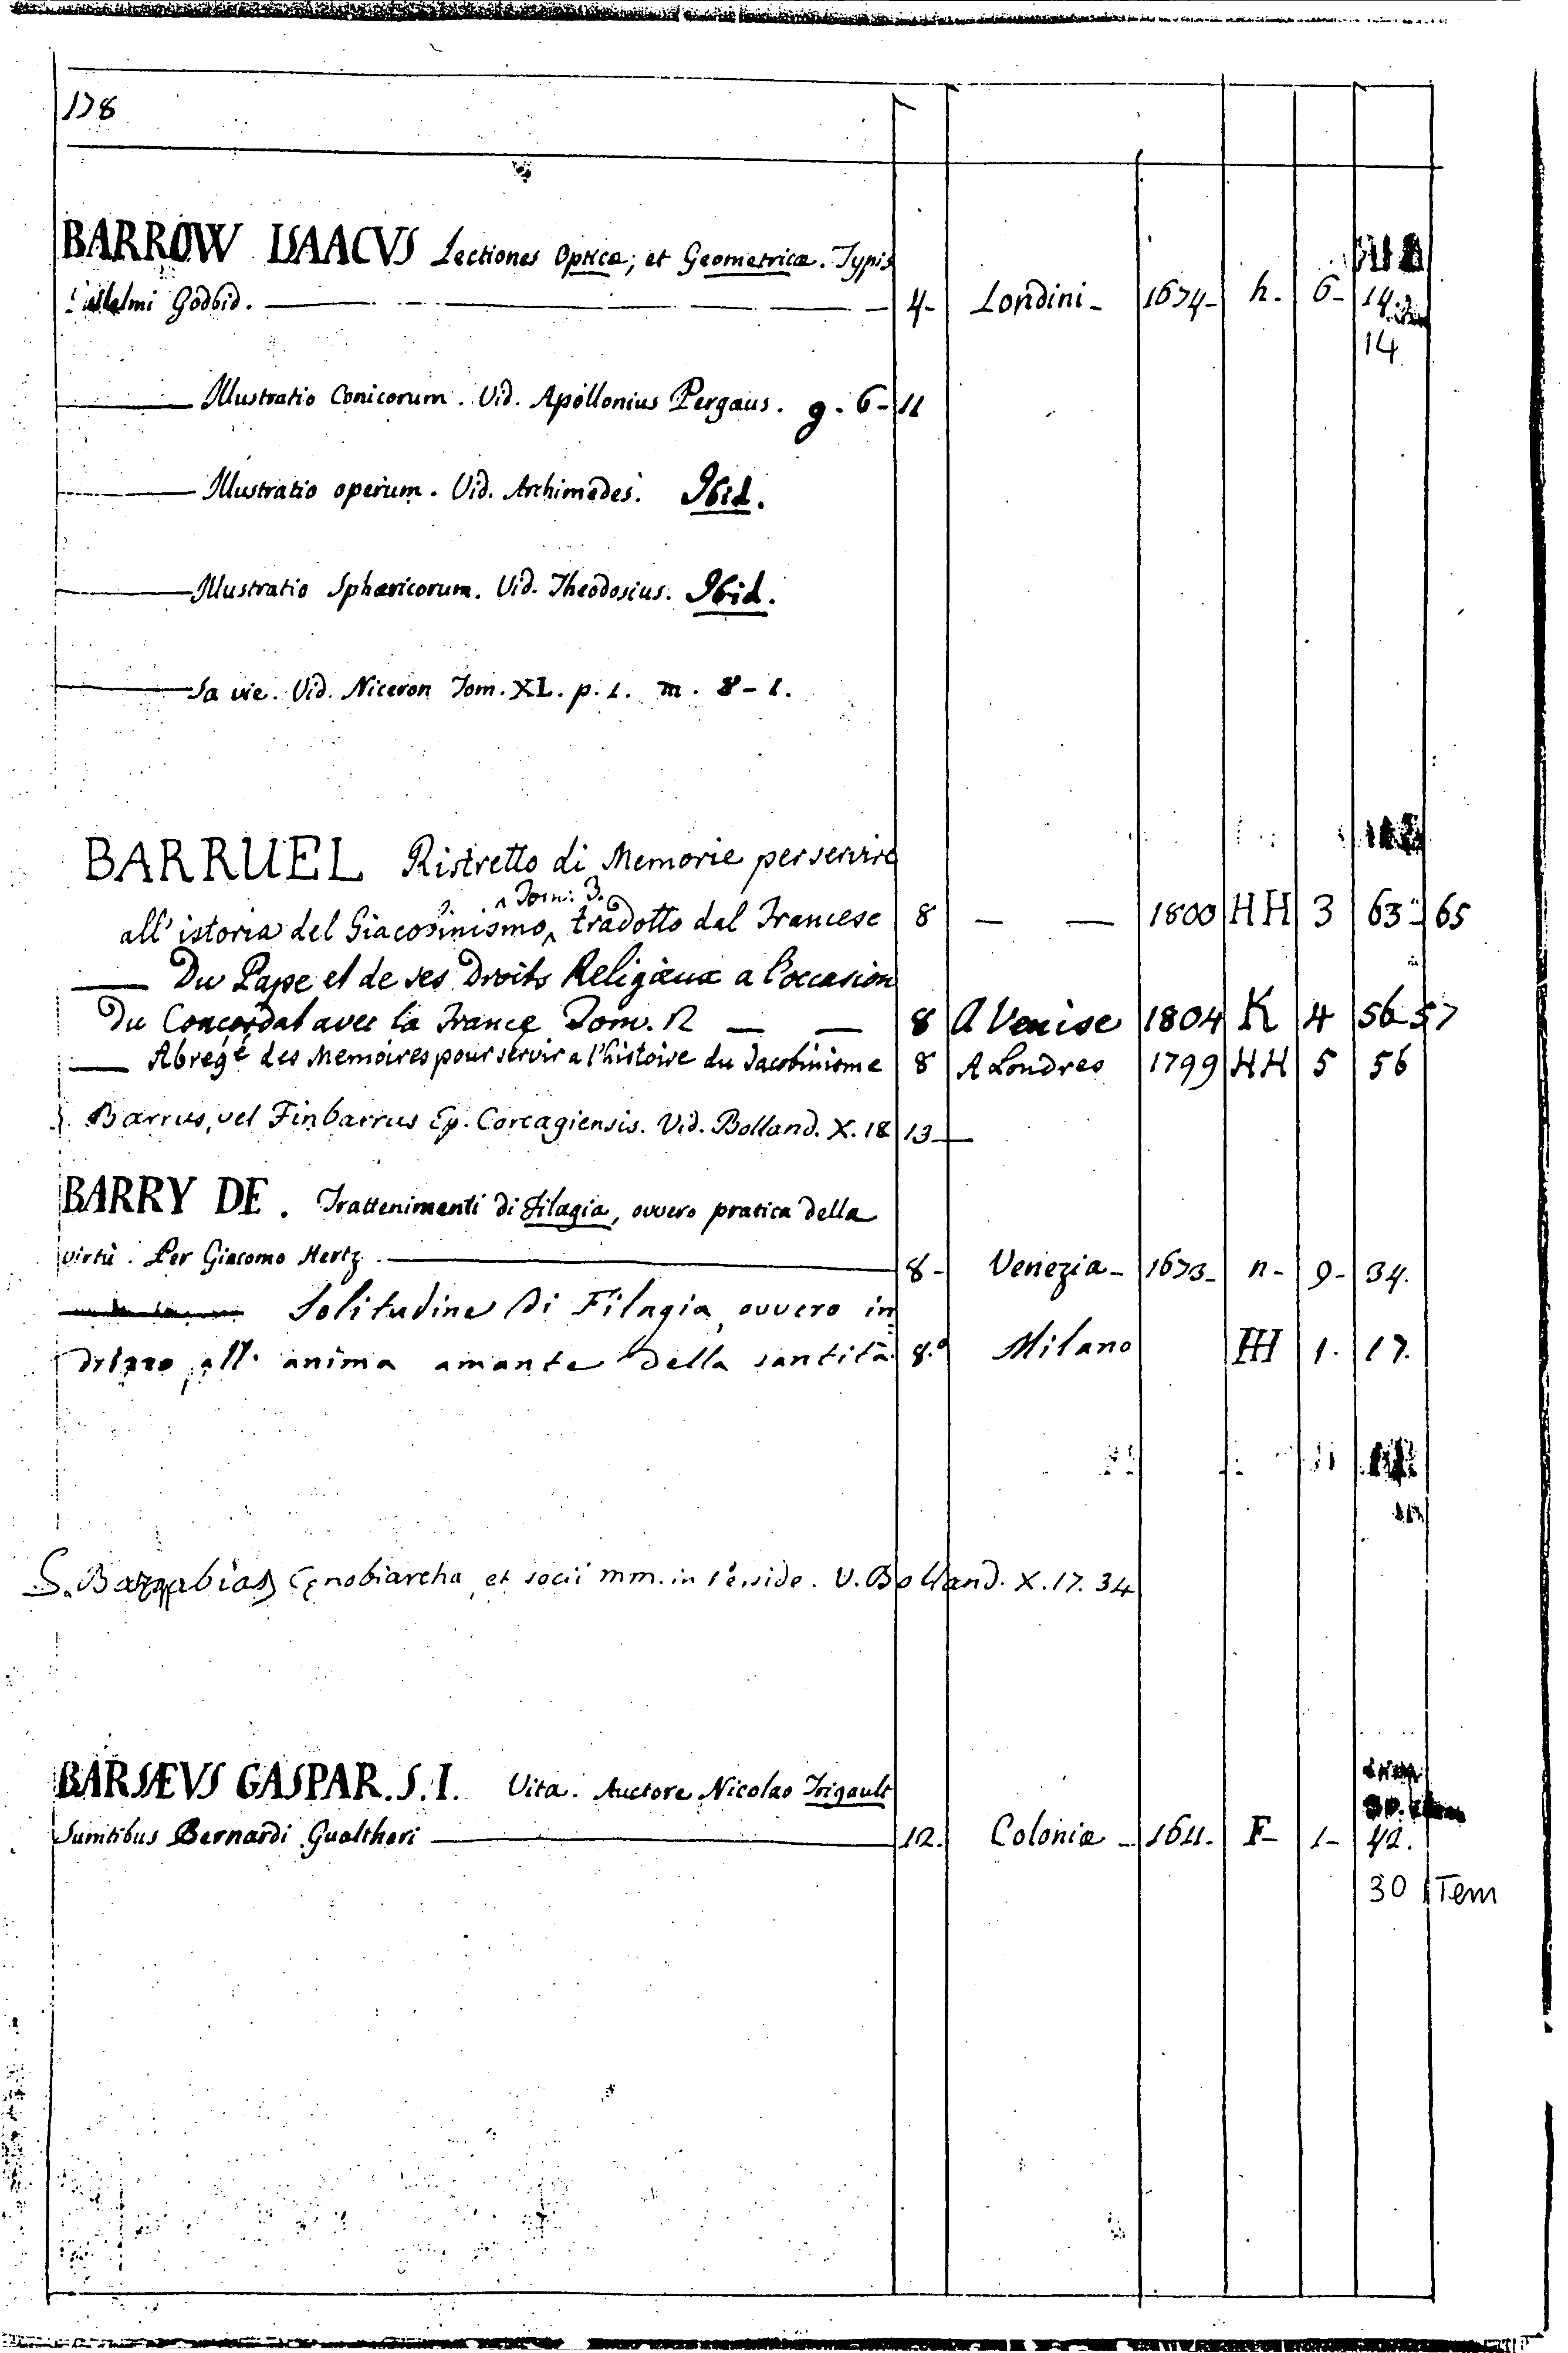 178
BARROW ISAACVS Lectiones Opticæ, et Geometricæ. Typis
Godbid. 4- Londini- 1674- h. 6- 14.
14
Illustratio Conicorum. Vid. Apollonius Pergæus. g. 6-11
Illustratio operum. Vid. Archimedes. Ibid.
Illustratio Sphæricorum. Vid. Theodosius. Ibid.
Sa vie. Vid. Niceron Tom. XL. p. 1. m. 8-1.
BARRUEL Ristretto di Memorie per servire
Tom: 3.
all' istoria del Giacobinismo tradotto dal Francese 8 — — 1800 HH 3 63-65
— Du Pape et de ses Droits Religieux a l'occasion
du Concordat avec la France Tom. 2 — — 8 A Venise 1804 K 4 56-57
— Abregé des Memoires pour servir a l'histoire du Jacobinisme 8 A Londres 1799 HH 5 56
Barrus, vel Finbarrus Ep. Corcagiensis. Vid. Bolland. X. 18 13—
BARRY DE. Trattenimenti di Filagia, ovvero pratica della
virtù. Per Giacomo Hertz. 8- Venezia- 1673- n- 9- 34.
Solitudine di Filagia, ovvero in
all' anima amante della santità 8.º Milano HH 1. 17.
S. Cenobiarcha et socii mm. in Perside. V. Bolland. X. 17. 34
BARSÆVS GASPAR. S. I. Vita. Auctore Nicolao Trigault
Sumtibus Bernardi Gualtheri 12. Coloniæ - 1611. F- 1- 42.
30 Tem